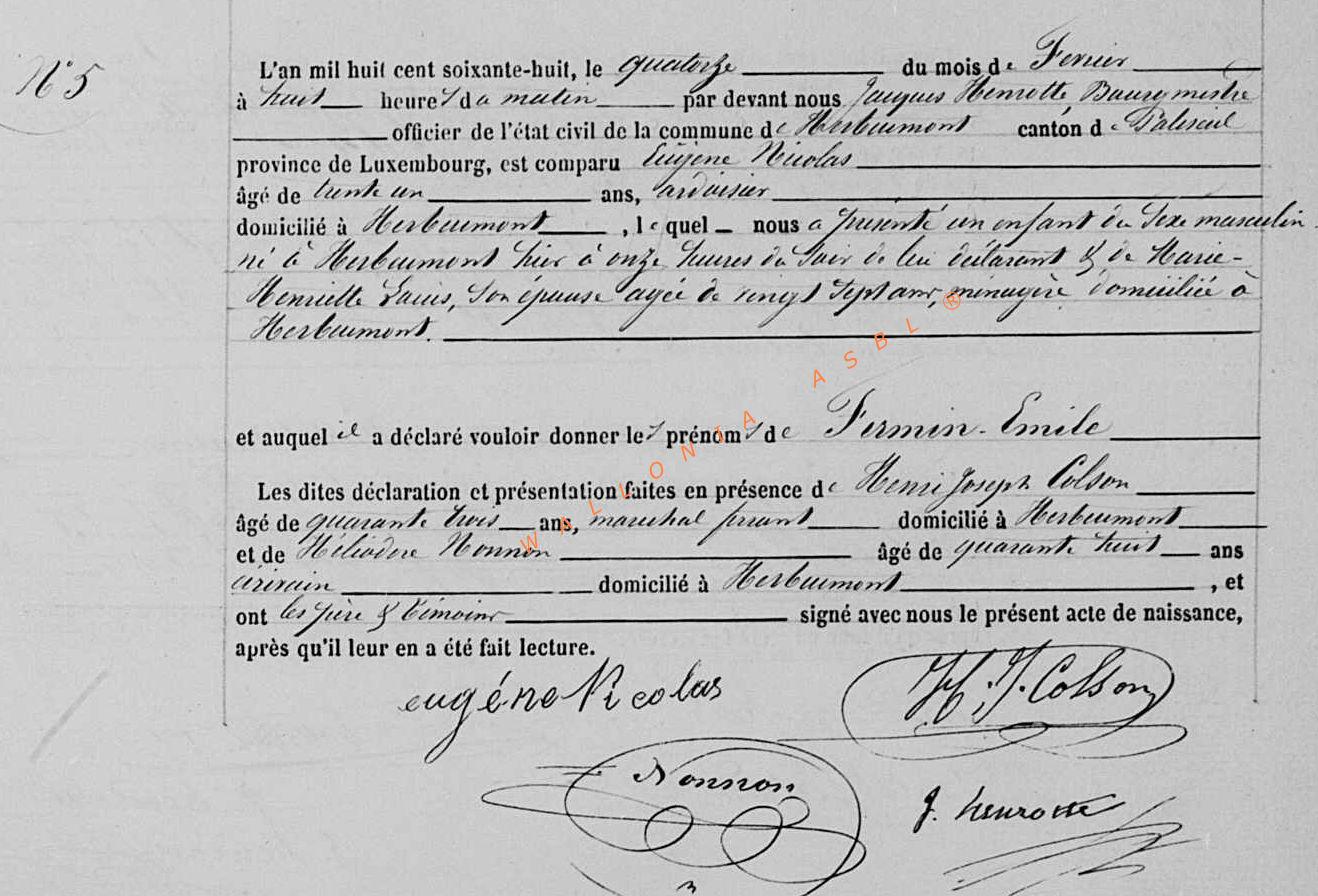 N° 5
L'an mil huit cent soixante-huit, le quatorze du mois de Fevrier
à huit heures du matin par devant nous Jacques Henrotte, Bourgmestre
officier de l'état civil de la commune de Herbeumont canton de Paliseul
province de Luxembourg, est comparu Eugène Nicolas
âgé de trente un ans, ardoisier
domicilié à Herbeumont, lequel nous a présenté un enfant du Sexe masculin
né à Herbeumont hier à onze heures du Soir de lui déclarant & de Marie-
Henriette Son épouse agée de vingt Sept ans, ménagère domiciliée à
Herbeumont.
et auquel il a déclaré vouloir donner les prénoms de Firmin-Emile
Les dites déclaration et présentation faites en présence de Henri Joseph Colson
âgé de quarante trois ans, maréchal ferrant domicilié à Herbeumont
et de Héliodore Nonnon âgé de quarante huit ans
domicilié à Herbeumont, et
ont les père & témoins signé avec nous le présent acte de naissance,
après qu'il leur en a été fait lecture.
eugène Nicolas H. J. Colson
Nonnon J. henrotte
WALLONIA ASBL ®